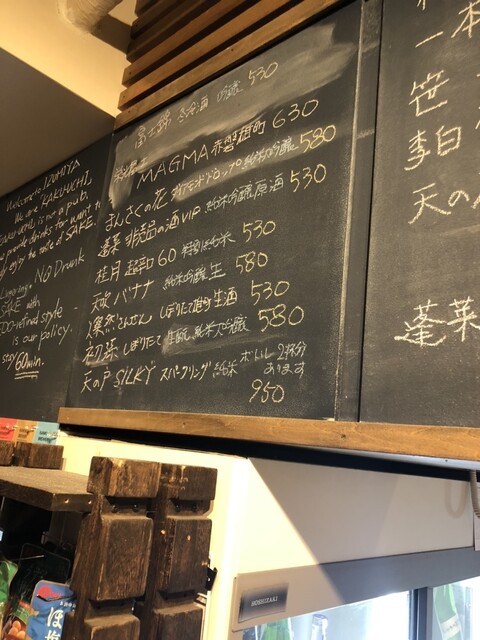 Welcome to IZUMIYA
We are "KAKUUCHI"
KAKU-UCHI is not a pub.
provide drinks for want to
enjoy the taste of SAKE.
No Drunk
SAKE with
EDO-refined style
is our policy.
stay 60min.
富士錦 冬冷酒 吟醸 530
MAGMA 赤磐雄町 630
まんさくの花 ダイヤモンドドロップ 純米吟醸 580
蓬莱 非売品の酒VIP 純米吟醸原酒 530
桂月 超辛口60 特別純米 530
天吹 バナナ 純米吟醸 生 580
燦然 しぼりたて 生酒 530
しぼりたて 生酛 純米大吟醸 580
天の戸 SILKY スパークリング 純米 ボトル 2杯分
あります
950
一本
笹
李白
天の
蓬莱
HOSHIZAKI